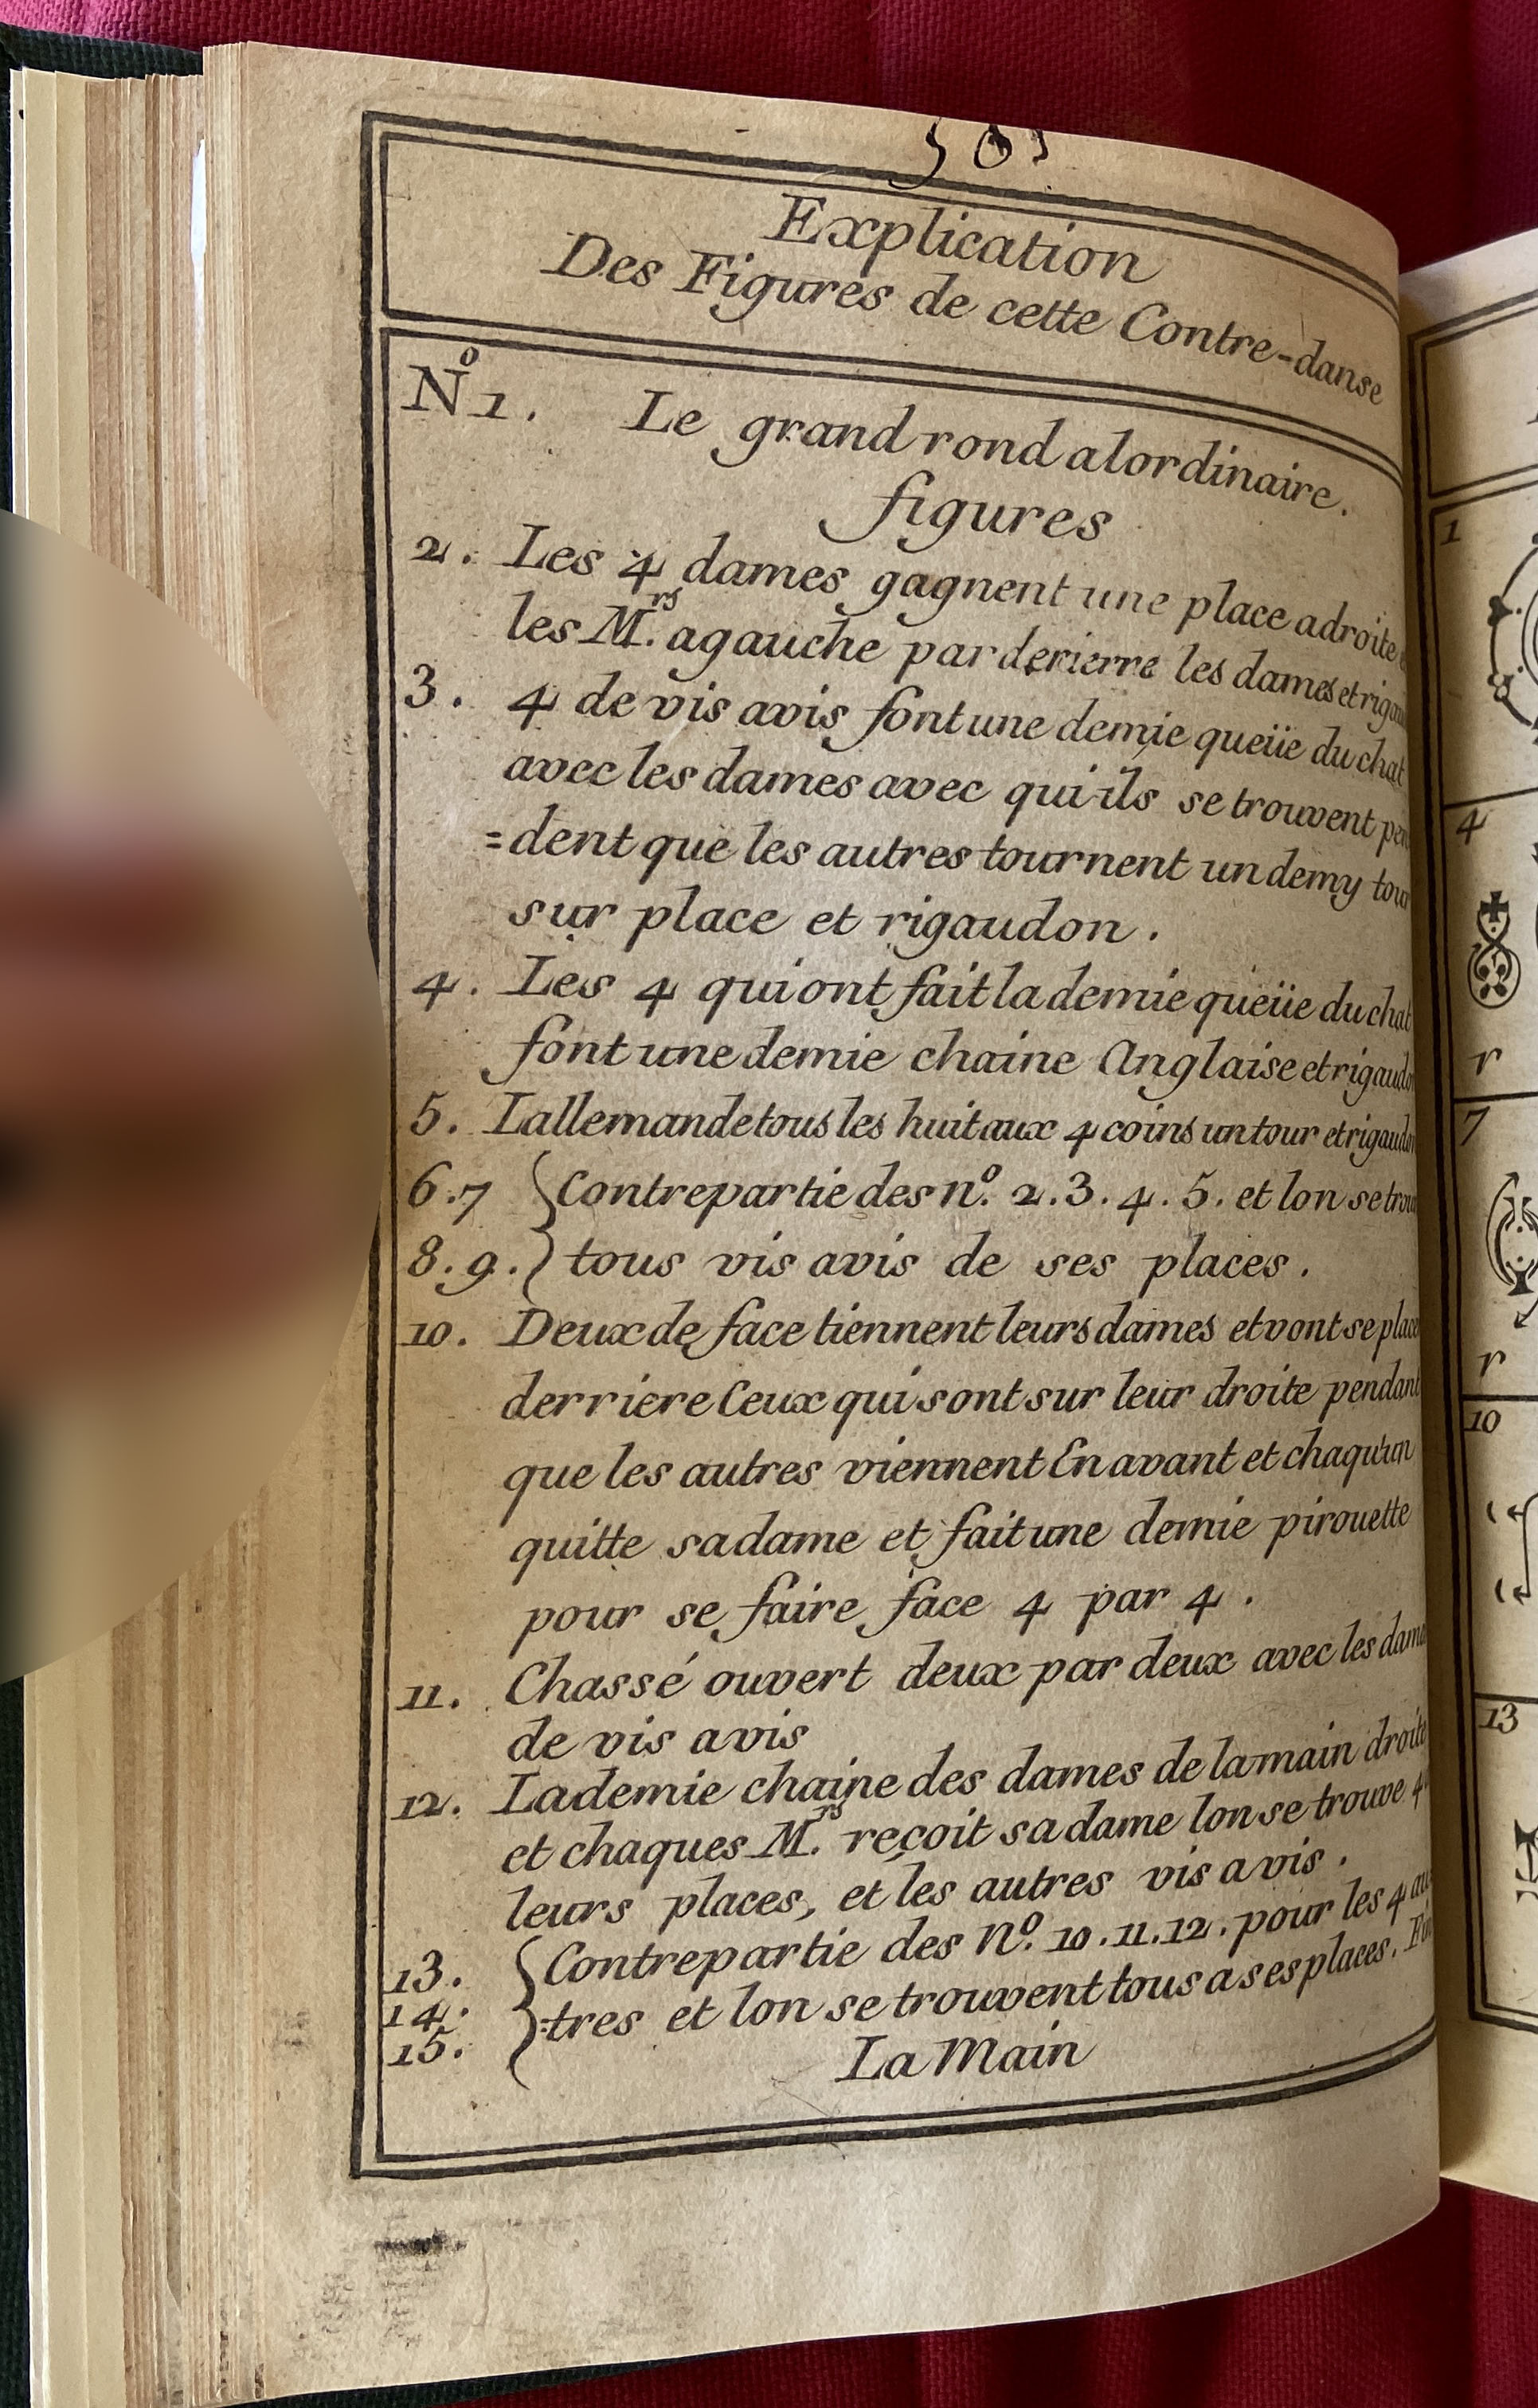 Explication
Des Figures de cette Contre-danse
No 1. Le grand rond alordinaire.
figures
2. Les 4 dames gagnent une place adroite
les M.rs agauche par derierre les dames et
3. 4 de vis avis font une demie queüe du chat
avec les dames avec qui ils se trouvent
=dent que les autres tournent un demy
sur place et rigaudon.
4. Les 4 qui ont fait la demie queüe du chat
font une demie chaine Anglaise et
5. Lallemande tous les huit aux 4 coins un tour et
6.7 Contrepartie des no. 2.3.4.5. et lon se
8.9. tous vis avis de ses places.
10. Deux de face tiennent leurs dames et vont se
derriere Ceux qui sont sur leur droite pendant
que les autres viennent En avant et chaqu'un
quitte sa dame et fait une demie pirouette
pour se faire face 4 par 4.
11. Chassé ouvert deux par deux avec les
de vis avis
12. La demie chaine des dames de la main droite
et chaques M.rs reçoit sa dame lon se trouve 4
leurs places, et les autres vis avis.
13. Contrepartie des No. 10.11.12. pour les 4
14. =tres et lon se trouvent tous a ses places.
15.
La Main
1
4
r
7
r
10
13